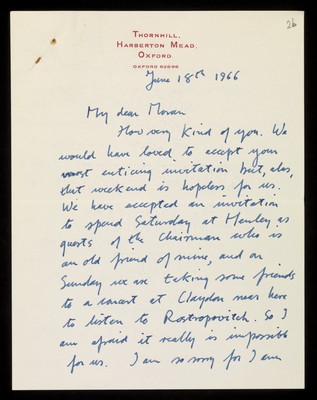 26
THORNHILL,
HARBERTON MEAD,
OXFORD.
OXFORD 62696
June 18th 1966
My dear Moran
How very kind of you. We
would have loved to accept your
most enticing invitation but, alas,
that weekend is hopeless for us.
We have accepted an invitation
to spend Saturday at Henley as
guests of the Chairman who is
an old friend of mine, and on
Sunday we are taking some friends
to a concert at Claydon near here
to listen to Rostropovitch. So I
am afraid it really is impossible
for us. I am so sorry for I am